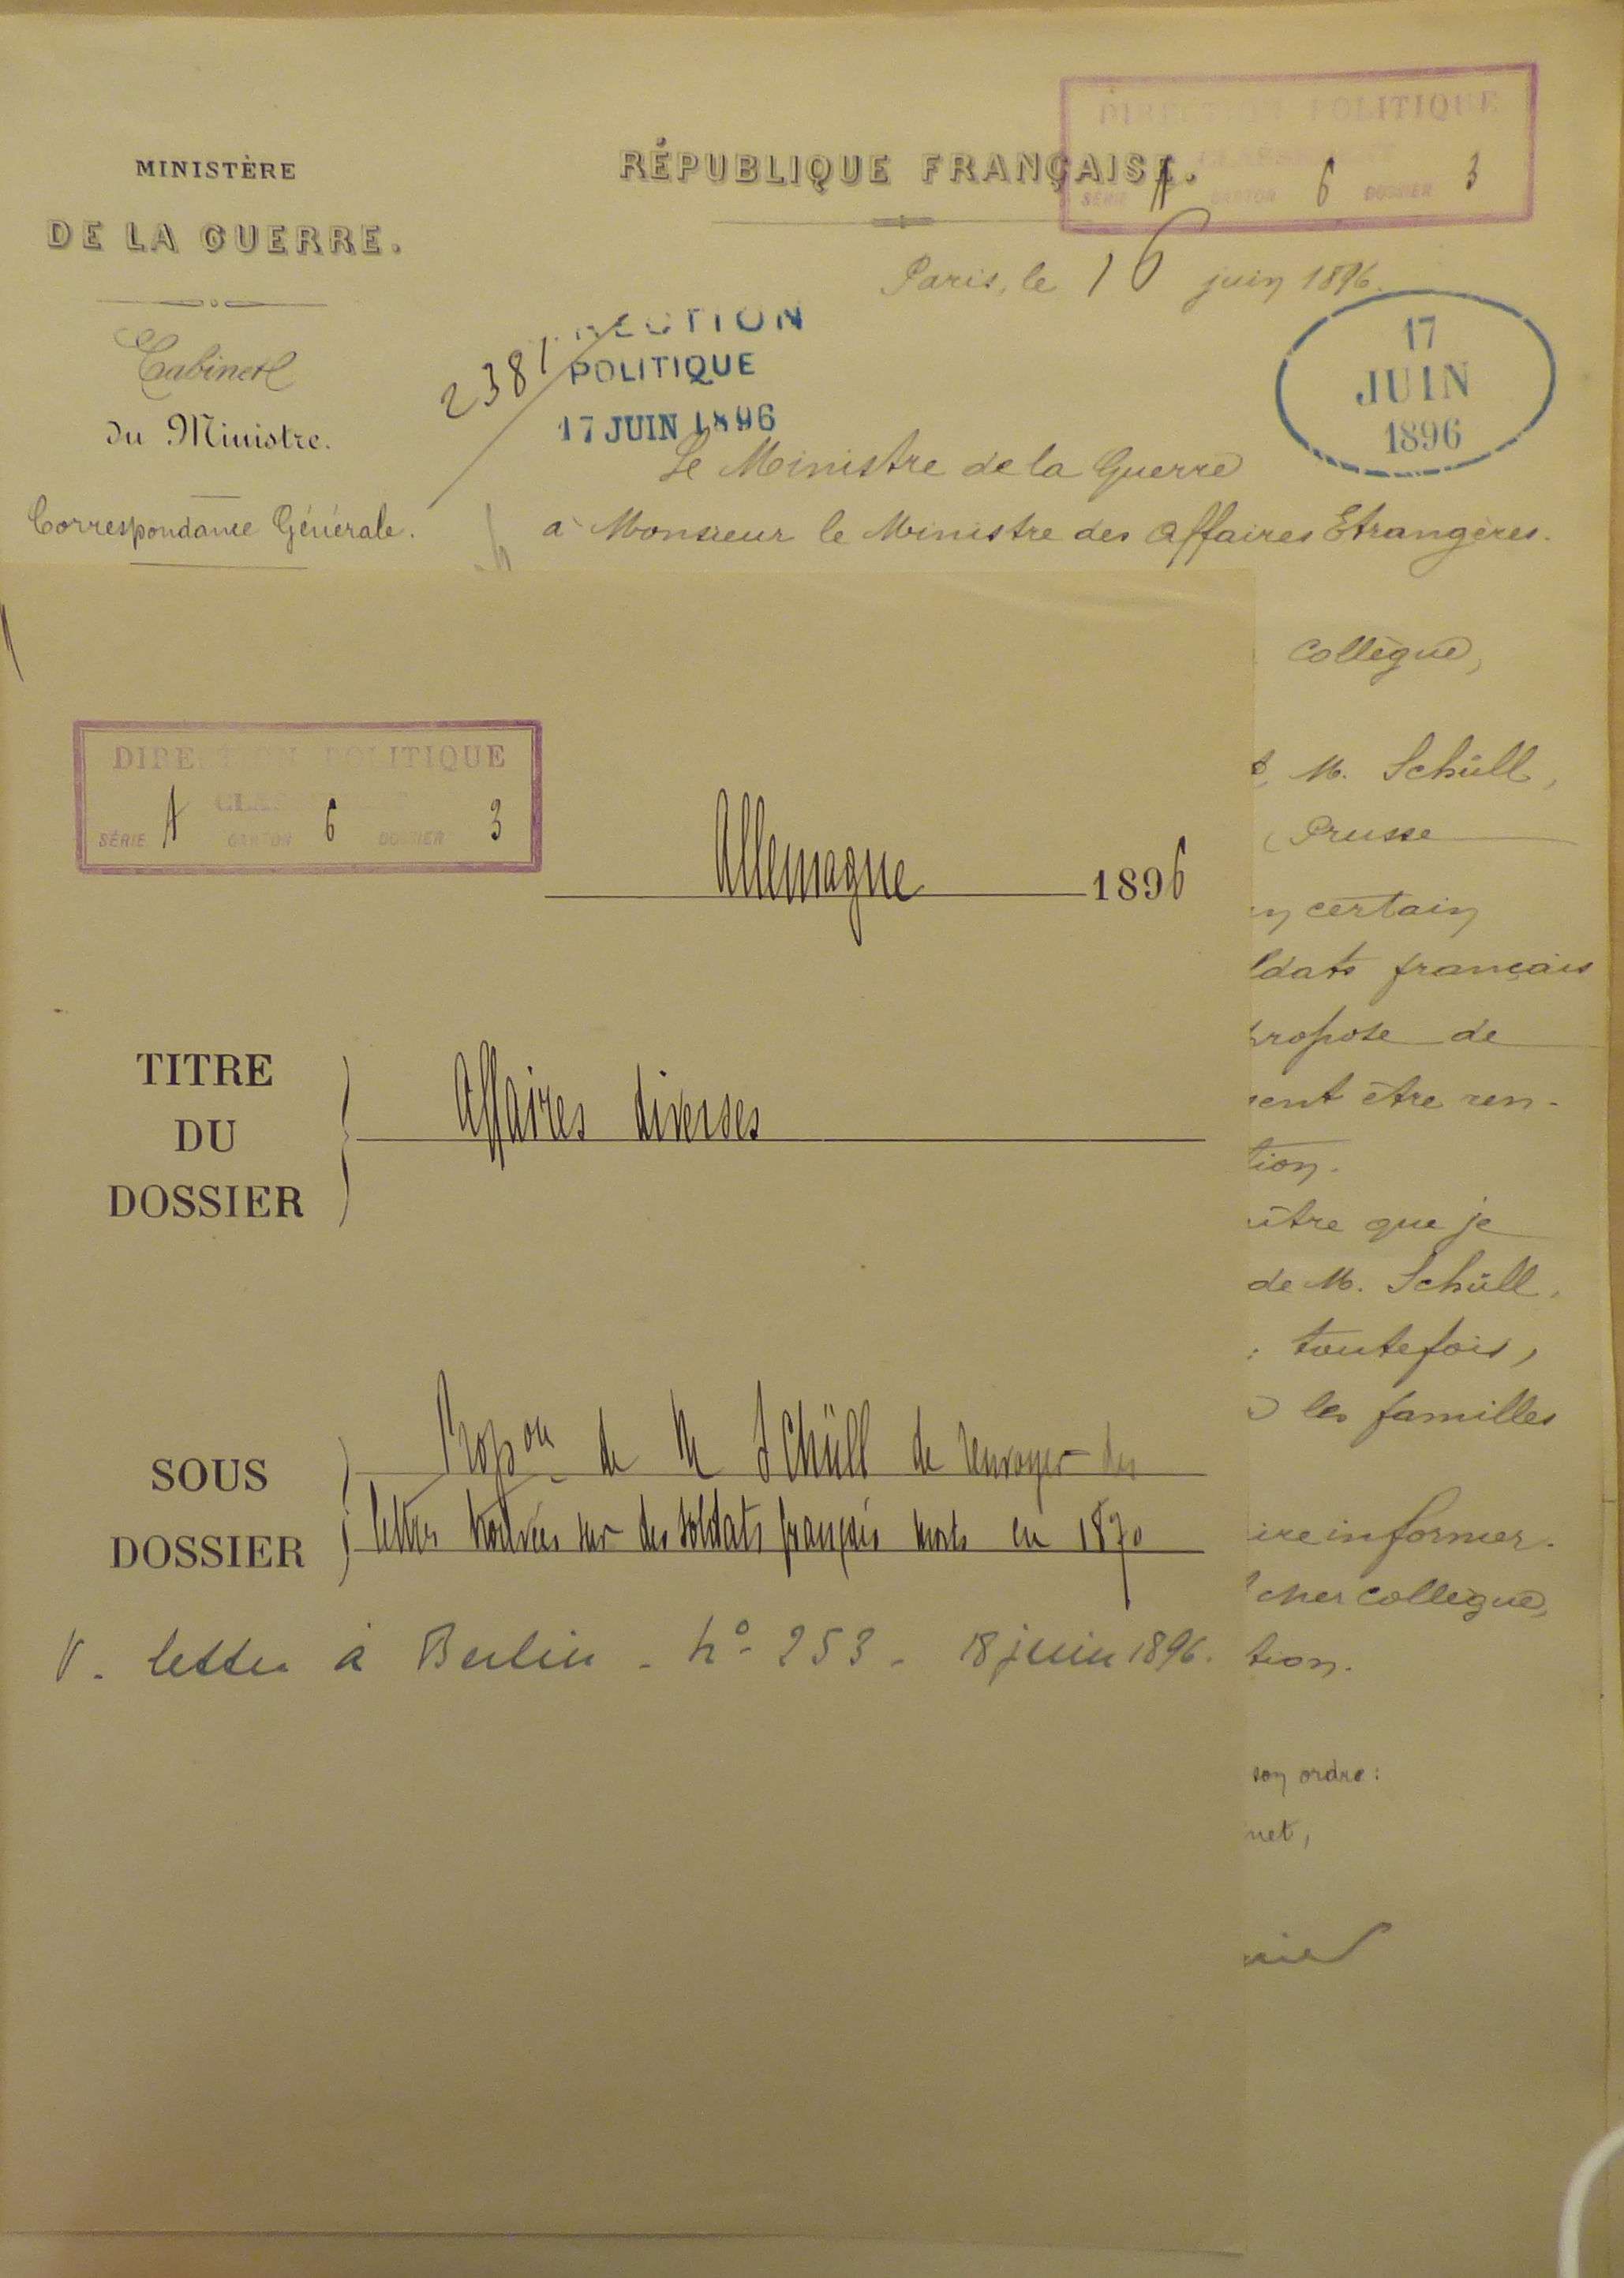 MINISTÈRE
DE LA GUERRE.
Cabinet
du Ministre.
Correspondance Générale.
RÉPUBLIQUE FRANÇAISE.
DIRECTION POLITIQUE
CLASSEMENT
SÉRIE A CARTON 6 DOSSIER 3
Paris, le 16 juin 1896.
2381
RECTION
POLITIQUE
17 JUIN 1896
17
JUIN
1896
Le Ministre de la Guerre
à Monsieur le Ministre des Affaires Etrangères.
Collègue,
M. Schüll,
Prusse
certain
ldats français
propose de
sent être ren-
tion.
ître que je
de M. Schüll.
: toutefois,
les familles
ire informer.
cher collègue,
tion.
son ordre:
net,
DIRECTION POLITIQUE
CLASSEMENT
SÉRIE A CARTON 6 DOSSIER 3
Allemagne 1896
TITRE
DU
DOSSIER
Affaires diverses
SOUS
DOSSIER
Propon de M Schüll de renvoyer des
lettres trouvées sur des soldats français morts en 1870
V. lettre à Berlin - No 253 - 18 juin 1896.